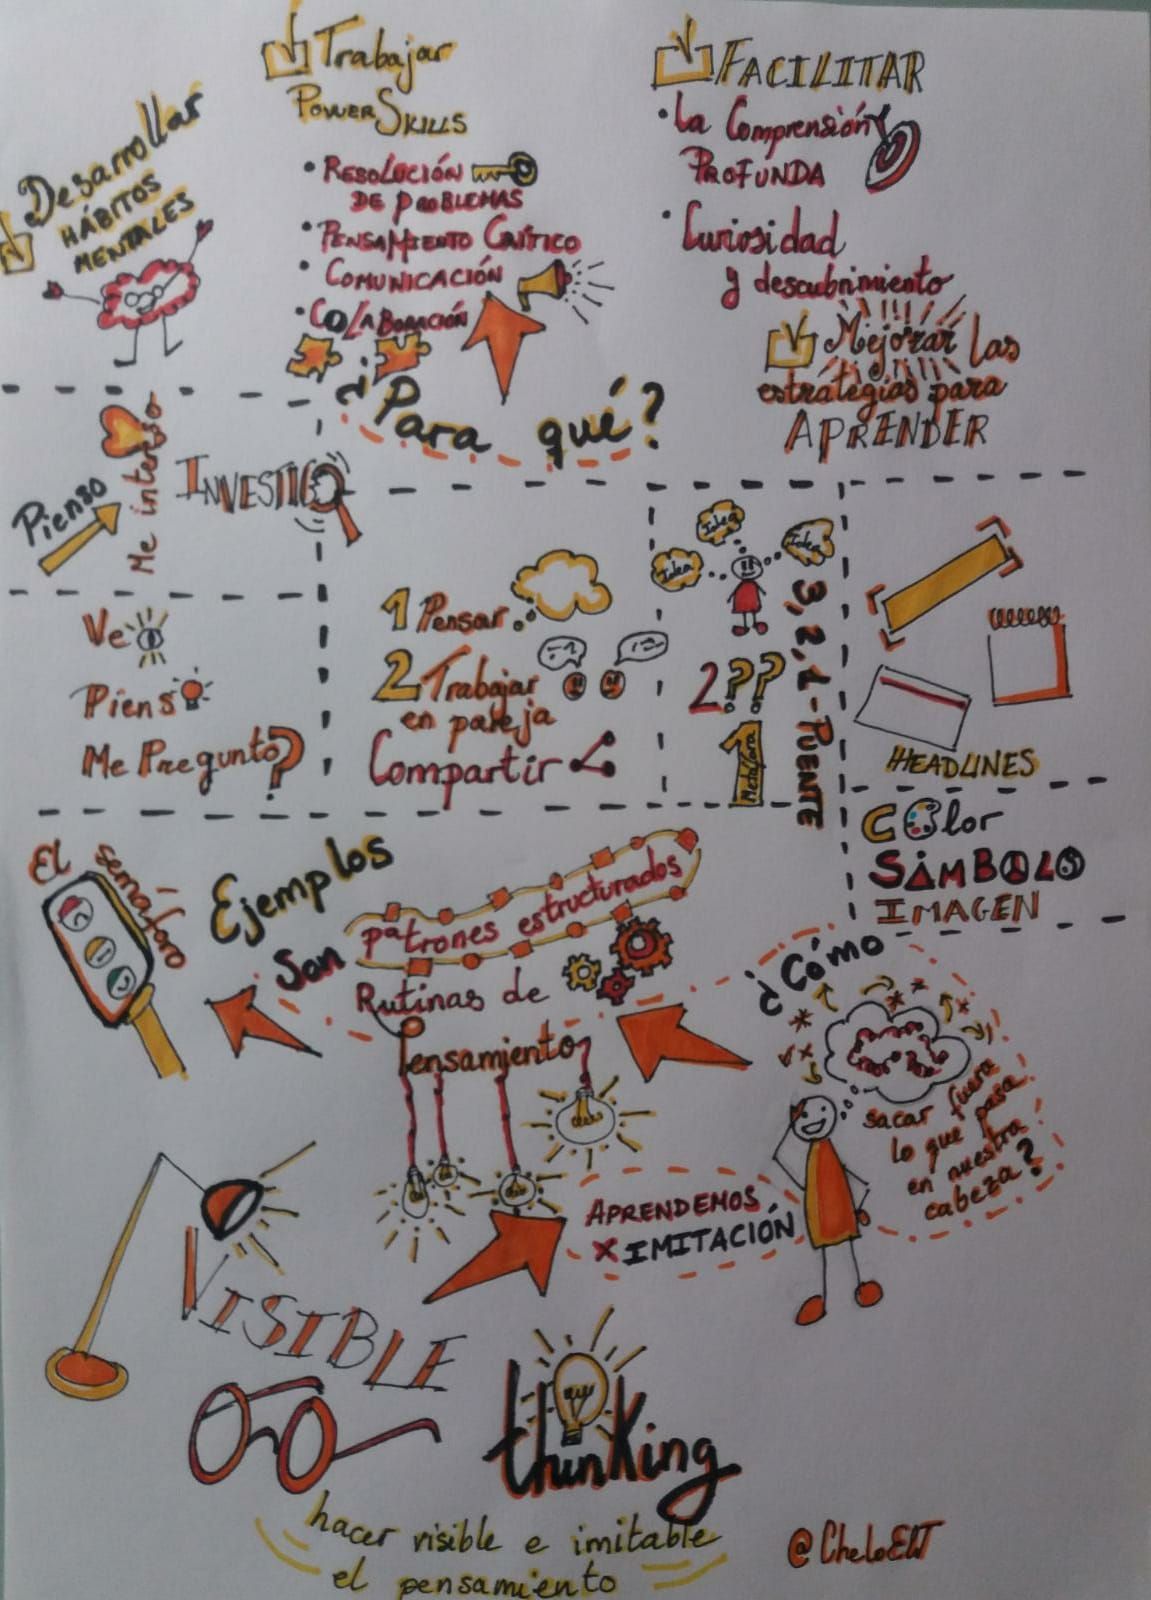 Desarrollar
HÁBITOS
MENTALES
Trabajar
POWER SKILLS
• RESOLUCIÓN
DE PROBLEMAS
• PENSAMIENTO CRÍTICO
• COMUNICACIÓN
• COLABORACIÓN
FACILITAR
• La Comprensión
PROFUNDA
• Curiosidad
y descubrimiento
Mejorar las
estrategias para
APRENDER
¿Para qué?
Pienso
Me intereso
INVESTIGO
Ve
Pienso
Me Pregunto?
1 Pensar
2 Trabajar
en pareja
Compartir
Idea
Idea
Idea
2??
1
Metáfora
3, 2, 1 - PUENTE
HEADLINES
COlor
SíMBOLO
IMAGEN
El semáforo
Ejemplos
Son patrones estructurados
Rutinas de
Pensamiento
¿Cómo
sacar fuera
lo que pasa
en nuestra
cabeza?
APRENDEMOS
X IMITACIÓN
VISIBLE
thinking
hacer visible e imitable
el pensamiento
@CheloEWT